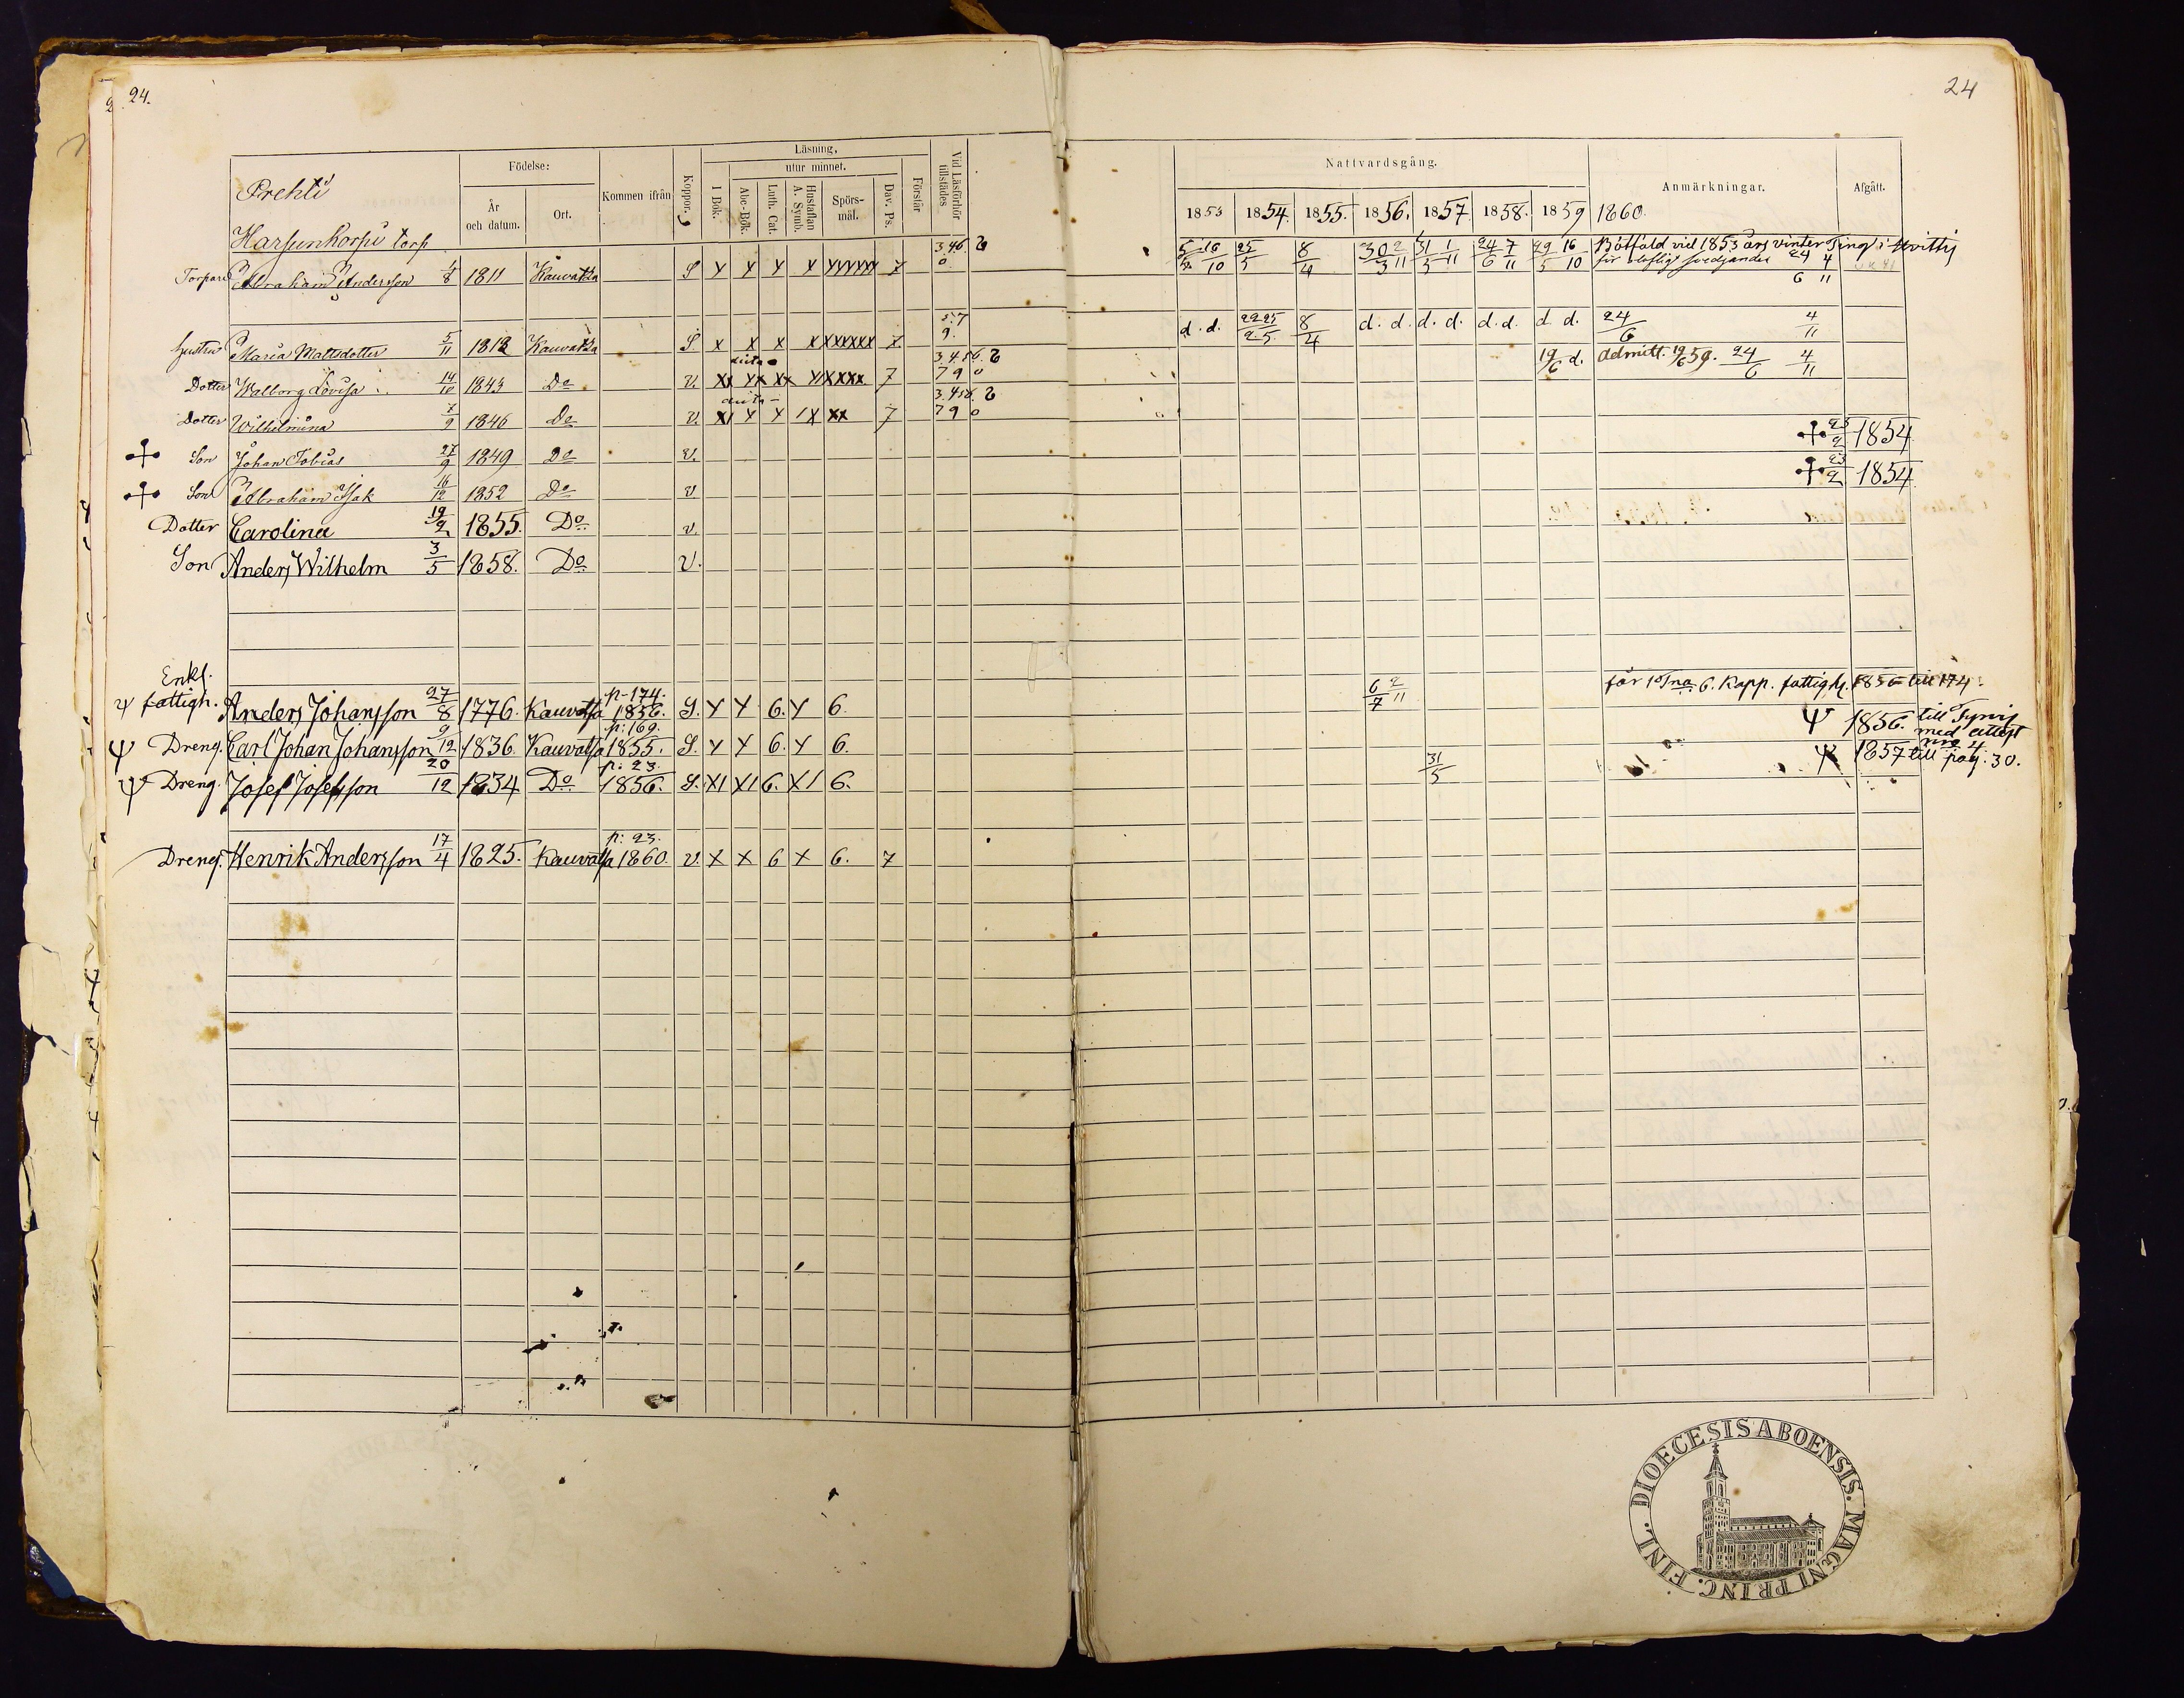 24.
24
Prehti
Harjunkorpi torp
Födelse:
År och datum.
Ort.
Kommen ifrån
Koppor.
Läsning,
utur minnet.
I Bok.
Abc-Bok.
Luth. Cat.
Hustaflan A. Symb.
Spörs-mål.
Dav. Ps.
Förstår
Vid Läsförhör tillstädes
Nattvardsgång.
1853 1854. 1855. 1856. 1857. 1858. 1859 1860.
Anmärkningar.
Afgått.
Torpare Abraham Andersson 1/8 1811 Kauvatsa S 3 4 6. 0 5/5 16/10 25/5 8/4 30/3 2/11 31/5 1/11 24/6 7/11 29/5 16/10 Bötfäld vid 1853 års vinter Ting i Hvittis
för olofligt svedjande 24/6 4/11
hustru Maria Mattsdotter 5/11 1812 Kauvatsa S. x x x x xxxxxx 7 5.7 9. d. d. 22/2 25/5 8/4 d. d. d. d. d. d. d d. 24/6 4/11
Dotter Walborg Lovisa 14/10 1843 Do v. 7 3. 4 5 6. 7 9 0 19/6 d. Admitt. 19/6 59. 24/6 4/11
Dotter Wilhelmina 7/9 1846 Do v. 7 3. 4 5 6. 7 9 0
Son Johan Tobias 27/9 1849 Do v. 25/2 1854
Son Abraham Isak 16/12 1852 Do v 23/2 1854
Dotter Carolina 19/2 1855. Do v.
Son Anders Wilhelm 3/5 1858. Do v.
Enkl.
fattigh. Anders Johansson 27/8 1776. Kauvatsa p-174. 1856. S. 6. 6. 6/7 2/11 får 1 Tna 6. Kapp. fattighj. 1856 till 174.
Dreng. Carl Johan Johansson 9/12 1836. Kauvatsa p: 169. 1855. S. 6. 6. 1856. till Tyrvis
med attest
nro 4.
Dreng. Josef Josefsson 20/12 1834 Do p: 23. 1856. S. XI XI 6. XI 6. 31/5 1857 till pag. 30.
Dreng. Henrik Andersson 17/4 1825. Kauvatsa p: 23. 1860 v. x x 6 x 6. 7
DIOECESIS ABOENSIS. MAGNI PRINC. FINL.